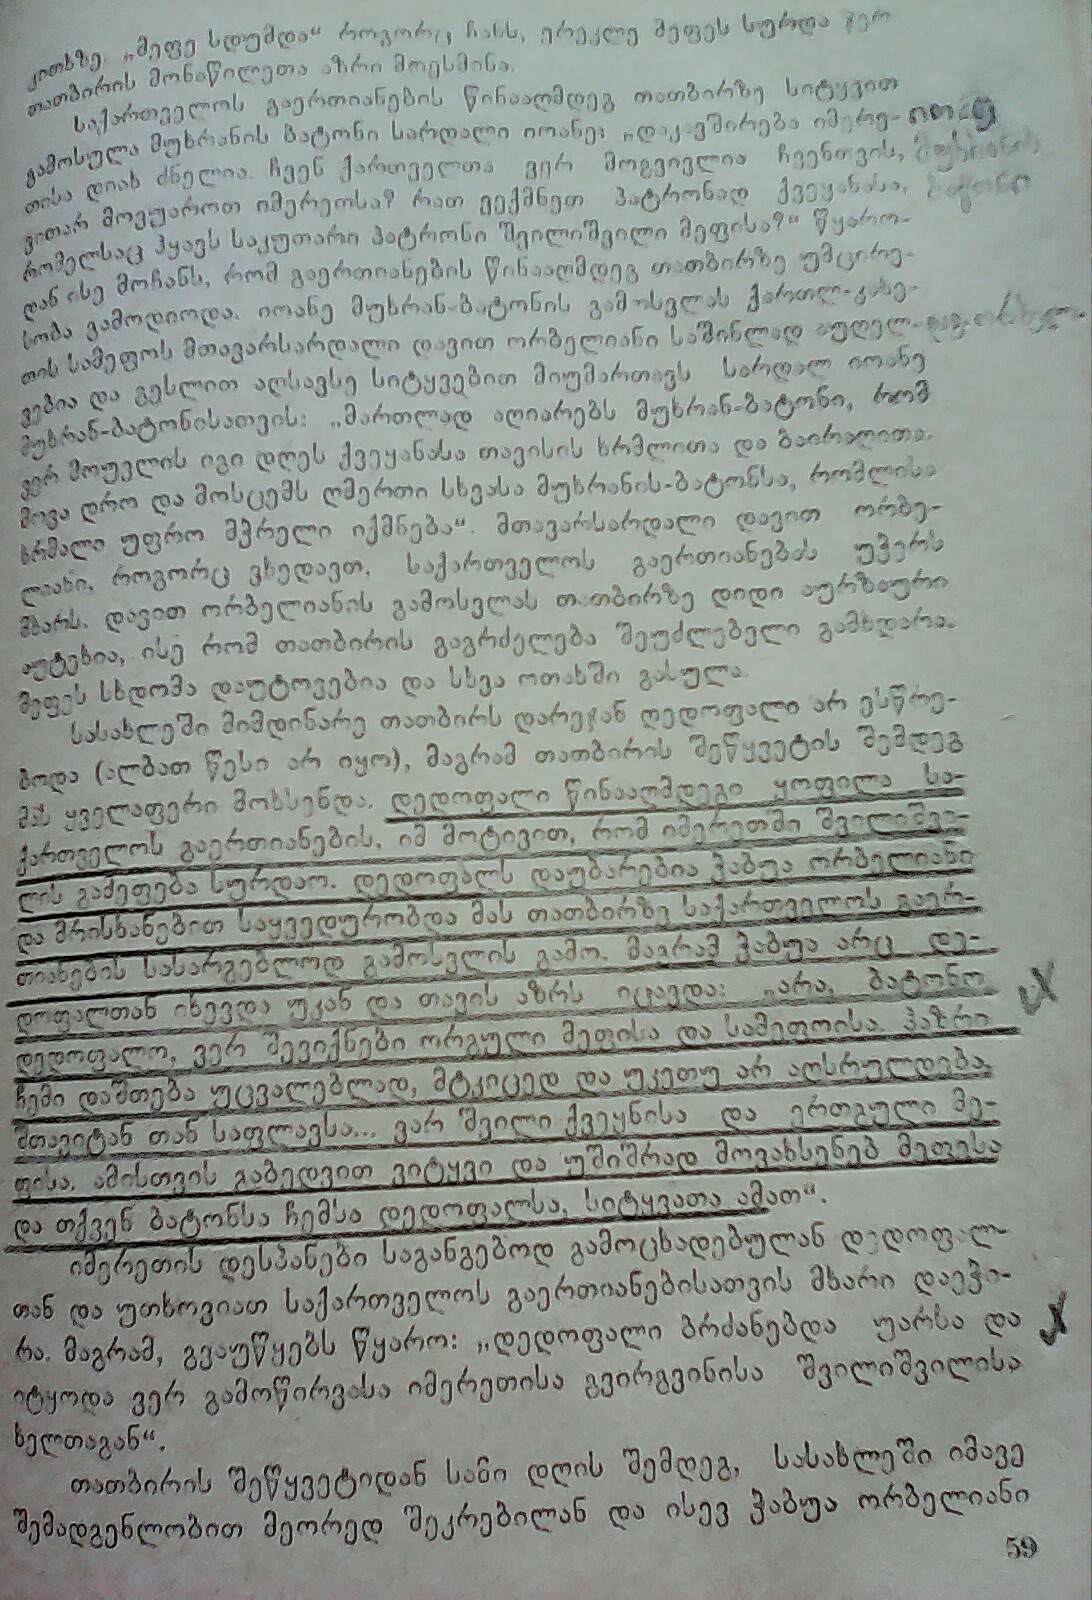 კითხზე. „მეფე სდუმდა“ როგორც ჩანს, ერეკლე მეფეს სურდა ჯერ
თათბირის მონაწილეთა აზრი მოესმინა.
საქართველოს გაერთიანების წინააღმდეგ თათბირზე სიტყვით
გამოსულა მუხრანის ბატონი სარდალი იოანე: „დაკავშირება იმერე-
თისა დიახ ძნელია. ჩვენ ქართველთა ვერ მოგვივლია ჩვენთვის,
ვითარ მოვუაროთ იმერეთსა? რათ ვექმნეთ პატრონად ქვეყანასა,
რომელსაც ჰყავს საკუთარი პატრონი შვილიშვილი მეფისა?“ წყარო-
დან ისე მოჩანს, რომ გაერთიანების წინააღმდეგ თათბირზე უმცირე-
სობა გამოდიოდა. იოანე მუხრან-ბატონის გამოსვლას ქართლ-კახე-
თის სამეფოს მთავარსარდალი დავით ორბელიანი საშინლად აუღელ-
ვებია და გესლით აღსავსე სიტყვებით მიუმართავს სარდალ იოანე
მუხრან-ბატონისათვის: „მართლად აღიარებს მუხრან-ბატონი, რომ
ვერ მოუვლის იგი დღეს ქვეყანასა თავისის ხრმლითა და ბაირაღითა.
მოვა დრო და მოსცემს ღმერთი სხვასა მუხრანის-ბატონსა, რომლისა
ხრმალი უფრო მჭრელი იქმნება“. მთავარსარდალი დავით ორბე-
ლიანი, როგორც ვხედავთ, საქართველოს გაერთიანებას უჭერს
მხარს. დავით ორბელიანის გამოსვლას თათბირზე დიდი აურზაური
აუტეხია, ისე რომ თათბირის გაგრძელება შეუძლებელი გამხდარა.
მეფეს სხდომა დაუტოვებია და სხვა ოთახში გასულა.
სასახლეში მიმდინარე თათბირს დარეჯან დედოფალი არ ესწრე-
ბოდა (ალბათ წესი არ იყო), მაგრამ თათბირის შეწყვეტის შემდეგ
მას ყველაფერი მოხსენდა. დედოფალი წინააღმდეგი ყოფილა სა-
ქართველოს გაერთიანების, იმ მოტივით, რომ იმერეთში შვილიშვი-
ლის გამეფება სურდაო. დედოფალს დაუბარებია ჭაბუა ორბელიანი
და მრისხანებით საყვედურობდა მას თათბირზე საქართველოს გაერ-
თიანების სასარგებლოდ გამოსვლის გამო. მაგრამ ჭაბუა არც დე-
დოფალთან იხევდა უკან და თავის აზრს იცავდა: „არა, ბატონო
დედოფალო, ვერ შევიქნები ორგული მეფისა და სამეფოისა. ჰაზრი
ჩემი დაშთება უცვალებლად, მტკიცედ და უკეთუ არ აღსრულდება,
შთავიტან თან საფლავსა... ვარ შვილი ქვეყნისა და ერთგული მე-
ფისა. ამისთვის გაბედვით ვიტყვი და უშიშრად მოვახსენებ მეფესა
და თქვენ ბატონსა ჩემსა დედოფალსა, სიტყვათა ამათ“.
იმერეთის დესპანები საგანგებოდ გამოცხადებულან დედოფალ-
თან და უთხოვიათ საქართველოს გაერთიანებისათვის მხარი დაეჭი-
რა. მაგრამ, გვაუწყებს წყარო: „დედოფალი ბრძანებდა უარსა და
იტყოდა ვერ გამოწირვასა იმერეთისა გვირგვინისა შვილიშვილისა
ხელთაგან“.
თათბირის შეწყვეტიდან სამი დღის შემდეგ, სასახლეში იმავე
შემადგენლობით მეორედ შეკრებილან და ისევ ჭაბუა ორბელიანი
59